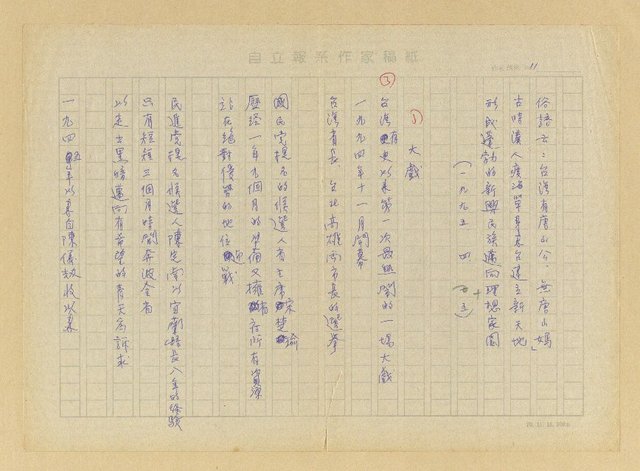 自立報系作家稿紙
11
俗語云：台灣有唐山公 無唐山媽」
古時漢人渡海單身來台建立新天地
形成蓬勃的新興民族邁向理想家園
（一九九五、四、十五）
③
1
大戲
台灣有史以來第一次最熱鬧的一場大戲
一九九四年十一月開幕
台灣省長、台北高雄兩市長的選舉
國民黨提名的候選人省主席宋楚瑜
歷經一年九個月的準備又擁有在所有資源
站在絕對優勢的地位迎戰
民進黨提名候選人陳定南以宜蘭縣長八年的經驗
只有短短三個月時間奔波全省
以走出黑暗邁向有希望的青天為訴求
一九四五年以來自陳儀劫收以來